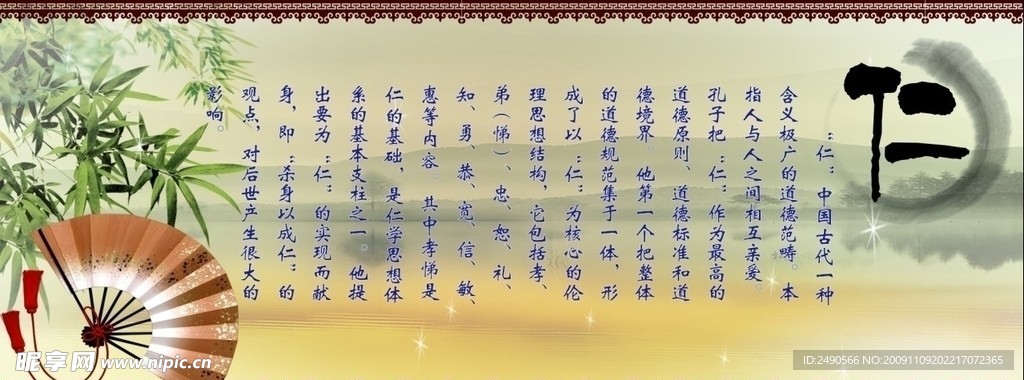 仁
：仁：中国古代一种
含义极广的道德范畴。本
指人与人之间相互亲爱。
孔子把：仁：作为最高的
道德原则、道德标准和道
德境界。他第一个把整体
的道德规范集于一体，形
成了以：仁：为核心的伦
理思想结构，它包括孝、
弟（悌）、忠、恕、礼、
知、勇、恭、宽、信、敏、
惠等内容。其中孝悌是
仁的基础，是仁学思想体
系的基本支柱之一。他提
出要为：仁：的实现而献
身，即：杀身以成仁：的
观点，对后世产生很大的
影响。
昵享网 www.nipic.cn
ID:2490566 NO:20091109202217072365